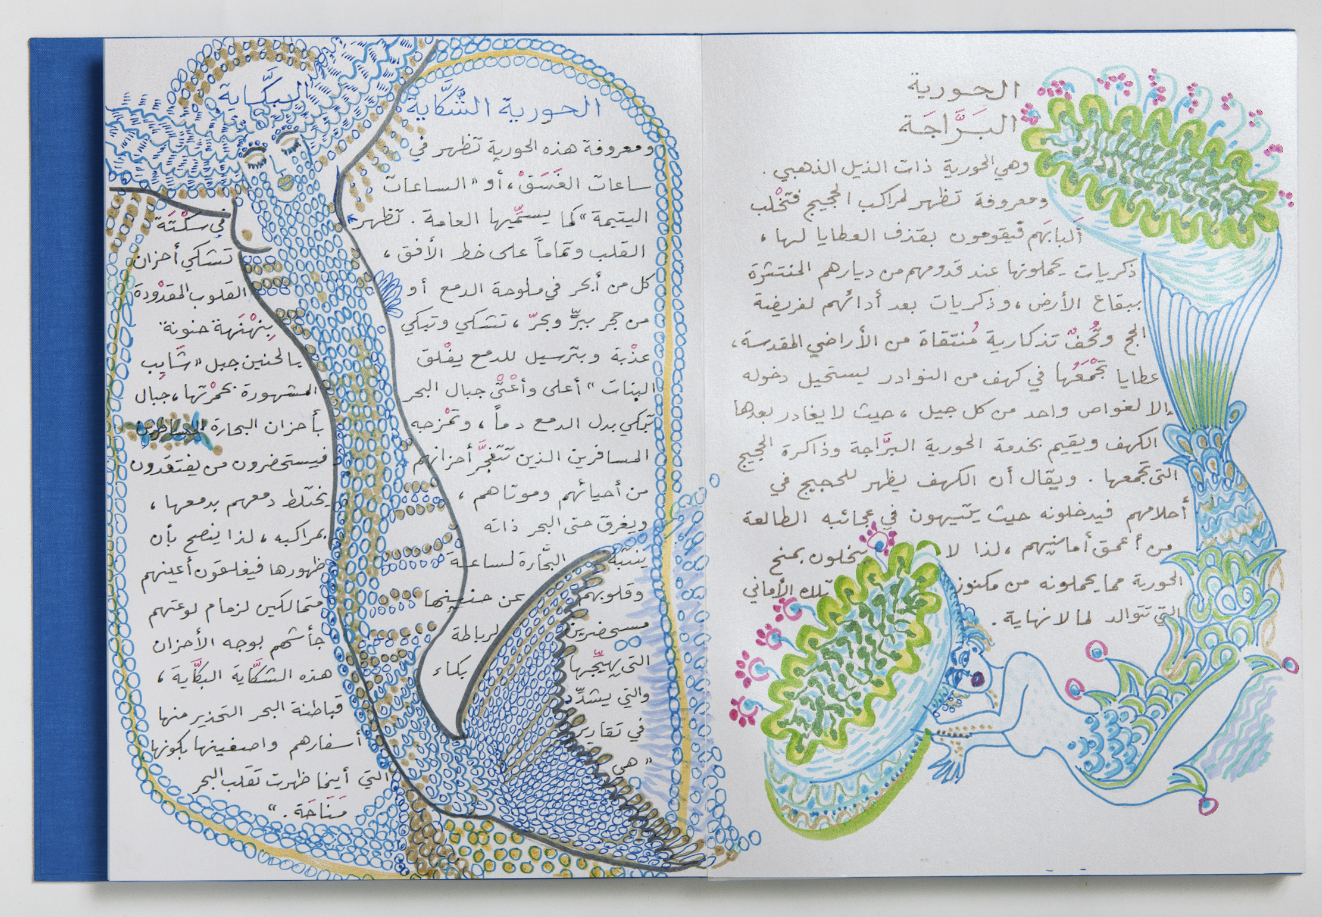 الحورية
البَرَّاجَة
وهي الحورية ذات الذيل الذهبي .
ومعروفة تظهر لمراكب الحجيج فتخلب
ألبابَهم فيقومون بقذف العطايا لها ،
ذكريات يحملونها عند قدومهم من ديارهم المنتشرة
ببقاع الأرض ، وذكريات بعد أدائهم لفريضة
الحج وتُحَفٌ تذكارية مُنتقاة من الأراضي المقدسة ،
عطايا تَجْمَعُها في كهف من النوادر يستحيل دخوله
الا لغواص واحد من كل جيل ، حيث لا يغادر بعدها
الكهف ويقيم بخدمة الحورية البرَّاجة وذاكرة الحجيج
التي تجمعها . ويقال أن الكهف يظهر للحجيج في
أحلامهم فيدخلونه حيث يتيهون في عجائبه الطالعة
من أعمق أمانيهم ، لذا لا يبخلون بمنح
الحورية مما يحملونه من مكنوز تلك الأماني
التي تتوالد لما لا نهاية .
الحورية الشَّكَّاية البكَّاية
ومعروفة هذه الحورية تظهر في
ساعات الغَسَقْ ، أو " الساعات
اليتيمة " كما يسمّيها العامة . تظهر
القلب وتماماً على خط الأفق ،
كل من أبحر في ملوحة الدمع أو
من حجر ببرٍّ وبحرّ ، تشكي وتبكي
عذبة وبترسيل للدمع يفْلق
البنات " أعلى وأعْتَى جبال البحر
تبكي بدل الدمع دماً ، وتَمْزجه
المسافرين الذين تتفجَّر أحزانهم
من أحيائهم وموتاهم ،
ويغرق حتى البحر ذاته
البحَّارة لساعة
وقلوبهم عن حنينها
مستحضرين لرباطة
التي يهيّجها بكاء
والتي يشدّ
في تقادير
" هي
في سكْتَة
تشكي أحزان
القلوب المقدودة
بِنهْنَهة حنونة
يالحنين جبل " شَايب
المشهورة بحُمرَتها ، جبال
بأحزان البحارة
فيستحضرون من يفتقدون
يختلط دمعهم بدمعها ،
بمراكبه ، لذا ينصح بأن
ظهورها فيغلقون أعينهم
متمالكين لزمام لوعتهم
جأشهم بوجه الأحزان
هذه الشكَّاية البكَّاية ،
قباطنة البحر التحذير منها
أسفارهم واصفينها بكونها
التي أينما ظهرت تقلب البحر
مَنَاحَة . "